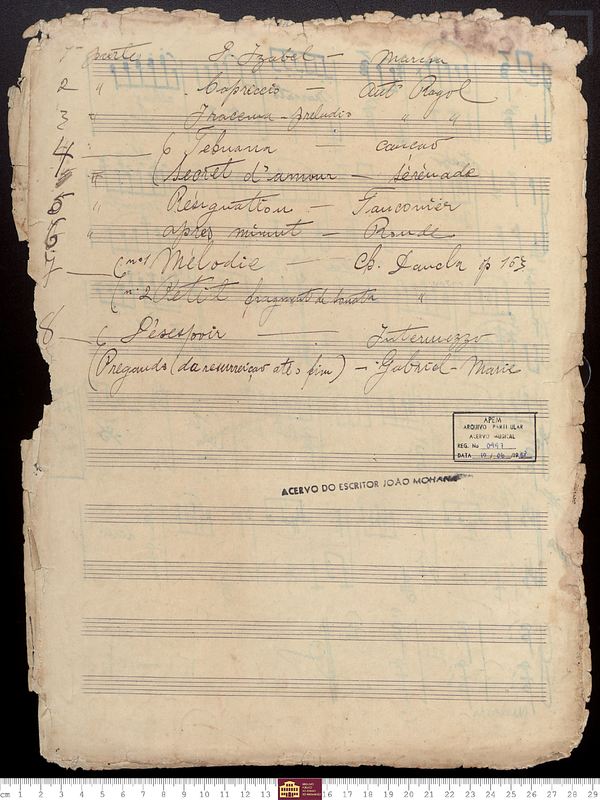 1ª parte S. Izabel — Marcha
2 " Capriccio — Aut Rayol
3 " Iracema - preludio " "
4 — ( Tebuana — cancão
" (Secret d'amour — sérénade
" Resignation — Fauconier
" après minuit — Ronde
7 — (nº1 Mélodie — Ch. Dancla op 163
(nº 2 Petit fragment de Sonata "
8 — ( Désespoir — Intermezzo
(Pregando (da resurreição até o fim) — Gabriel-Marie
APEM
ARQUIVO PARTICULAR
ACERVO MUSICAL
REG. No
DATA
ACERVO DO ESCRITOR JOÃO MOHANA
cm 1 2 3 4 5 6 7 8 9 10 11 12 13 14 15 16 17 18 19 20 21 22 23 24 25 26 27 28 29